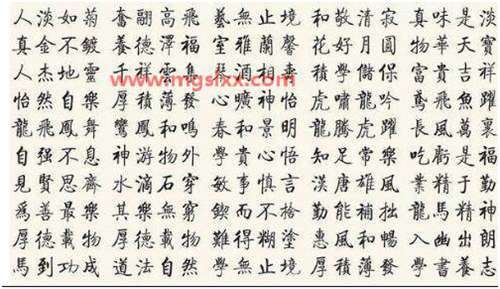 人淡如菊 奮翮高飛 藝無止境 和敬清寂 真味是淡
真金不鍍 養德澤福 室雅蘭馨 花好月圓 物華天寶
人杰地靈 千祥雲集 酒相 學儲 富貴吉祥
www.mgslxx.com
怡然自樂 厚積薄發 心曠神怡 虎嘯龍吟 鳶飛魚躍
龍飛鳳舞 鸞鳳和鳴 春和景明 龍騰虎躍 長風萬裏
自强不息 神游物外 學貴心悟 知足常樂 吃虧是福
見賢思齊 水滴石穿 敏事慎言 漢唐雄風 業精于勤
爲善最樂 其樂無窮 鍥而不捨 勤能補拙 龍馬精神
厚德載物 厚德載物 難得糊塗 惠風和暢 入幽出朗
馬到功成 道法自然 學無止境 厚積薄發 學書養志